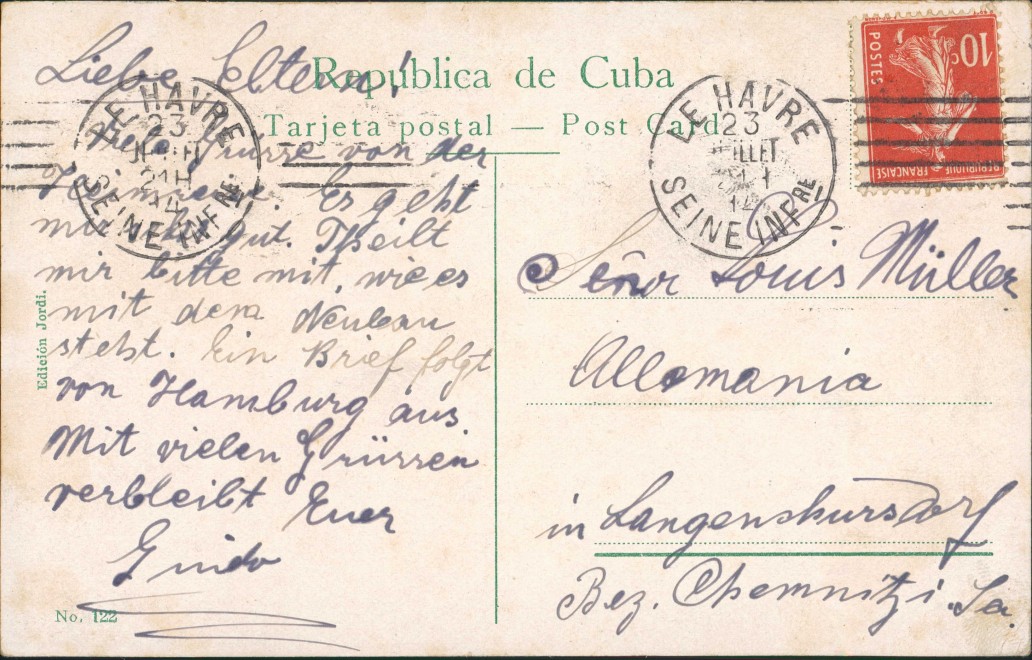 República de Cuba
Tarjeta postal — Post Card
Liebe Eltern!
Viele Grüsse von der
Heimreise. Er geht
mir sehr gut. Theilt
mir bitte mit, wie es
mit dem Neubau
steht. Ein Brief folgt
von Hamburg aus.
Mit vielen Grüssen
verbleibt Euer
Guido
Edición Jordi.
No. 122
LE HAVRE
23
21H
14
SEINE INFRE
LE HAVRE
23
JUILLET
14
SEINE INFRE
10c
POSTES
REPUBLIQUE FRANÇAISE
Señor Louis Müller
Allemania
in Langenskursdorf
Bez. Chemnitz i. Sa.